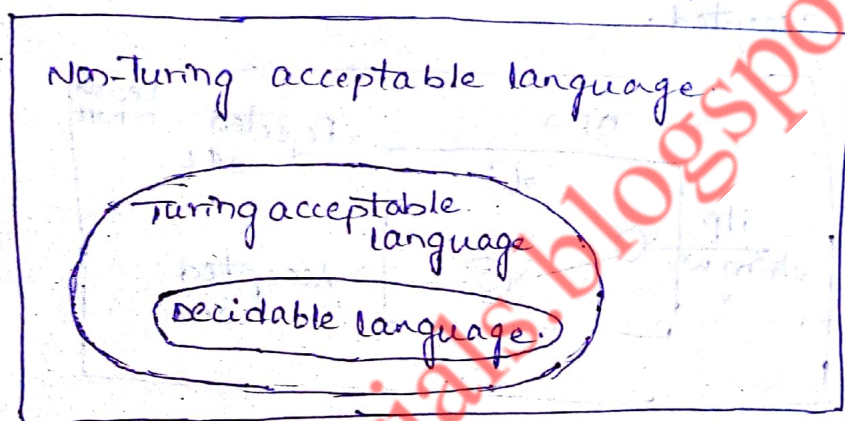 Non-Turing acceptable language.
Turing acceptable
language
Decidable language.
ials.blogspo